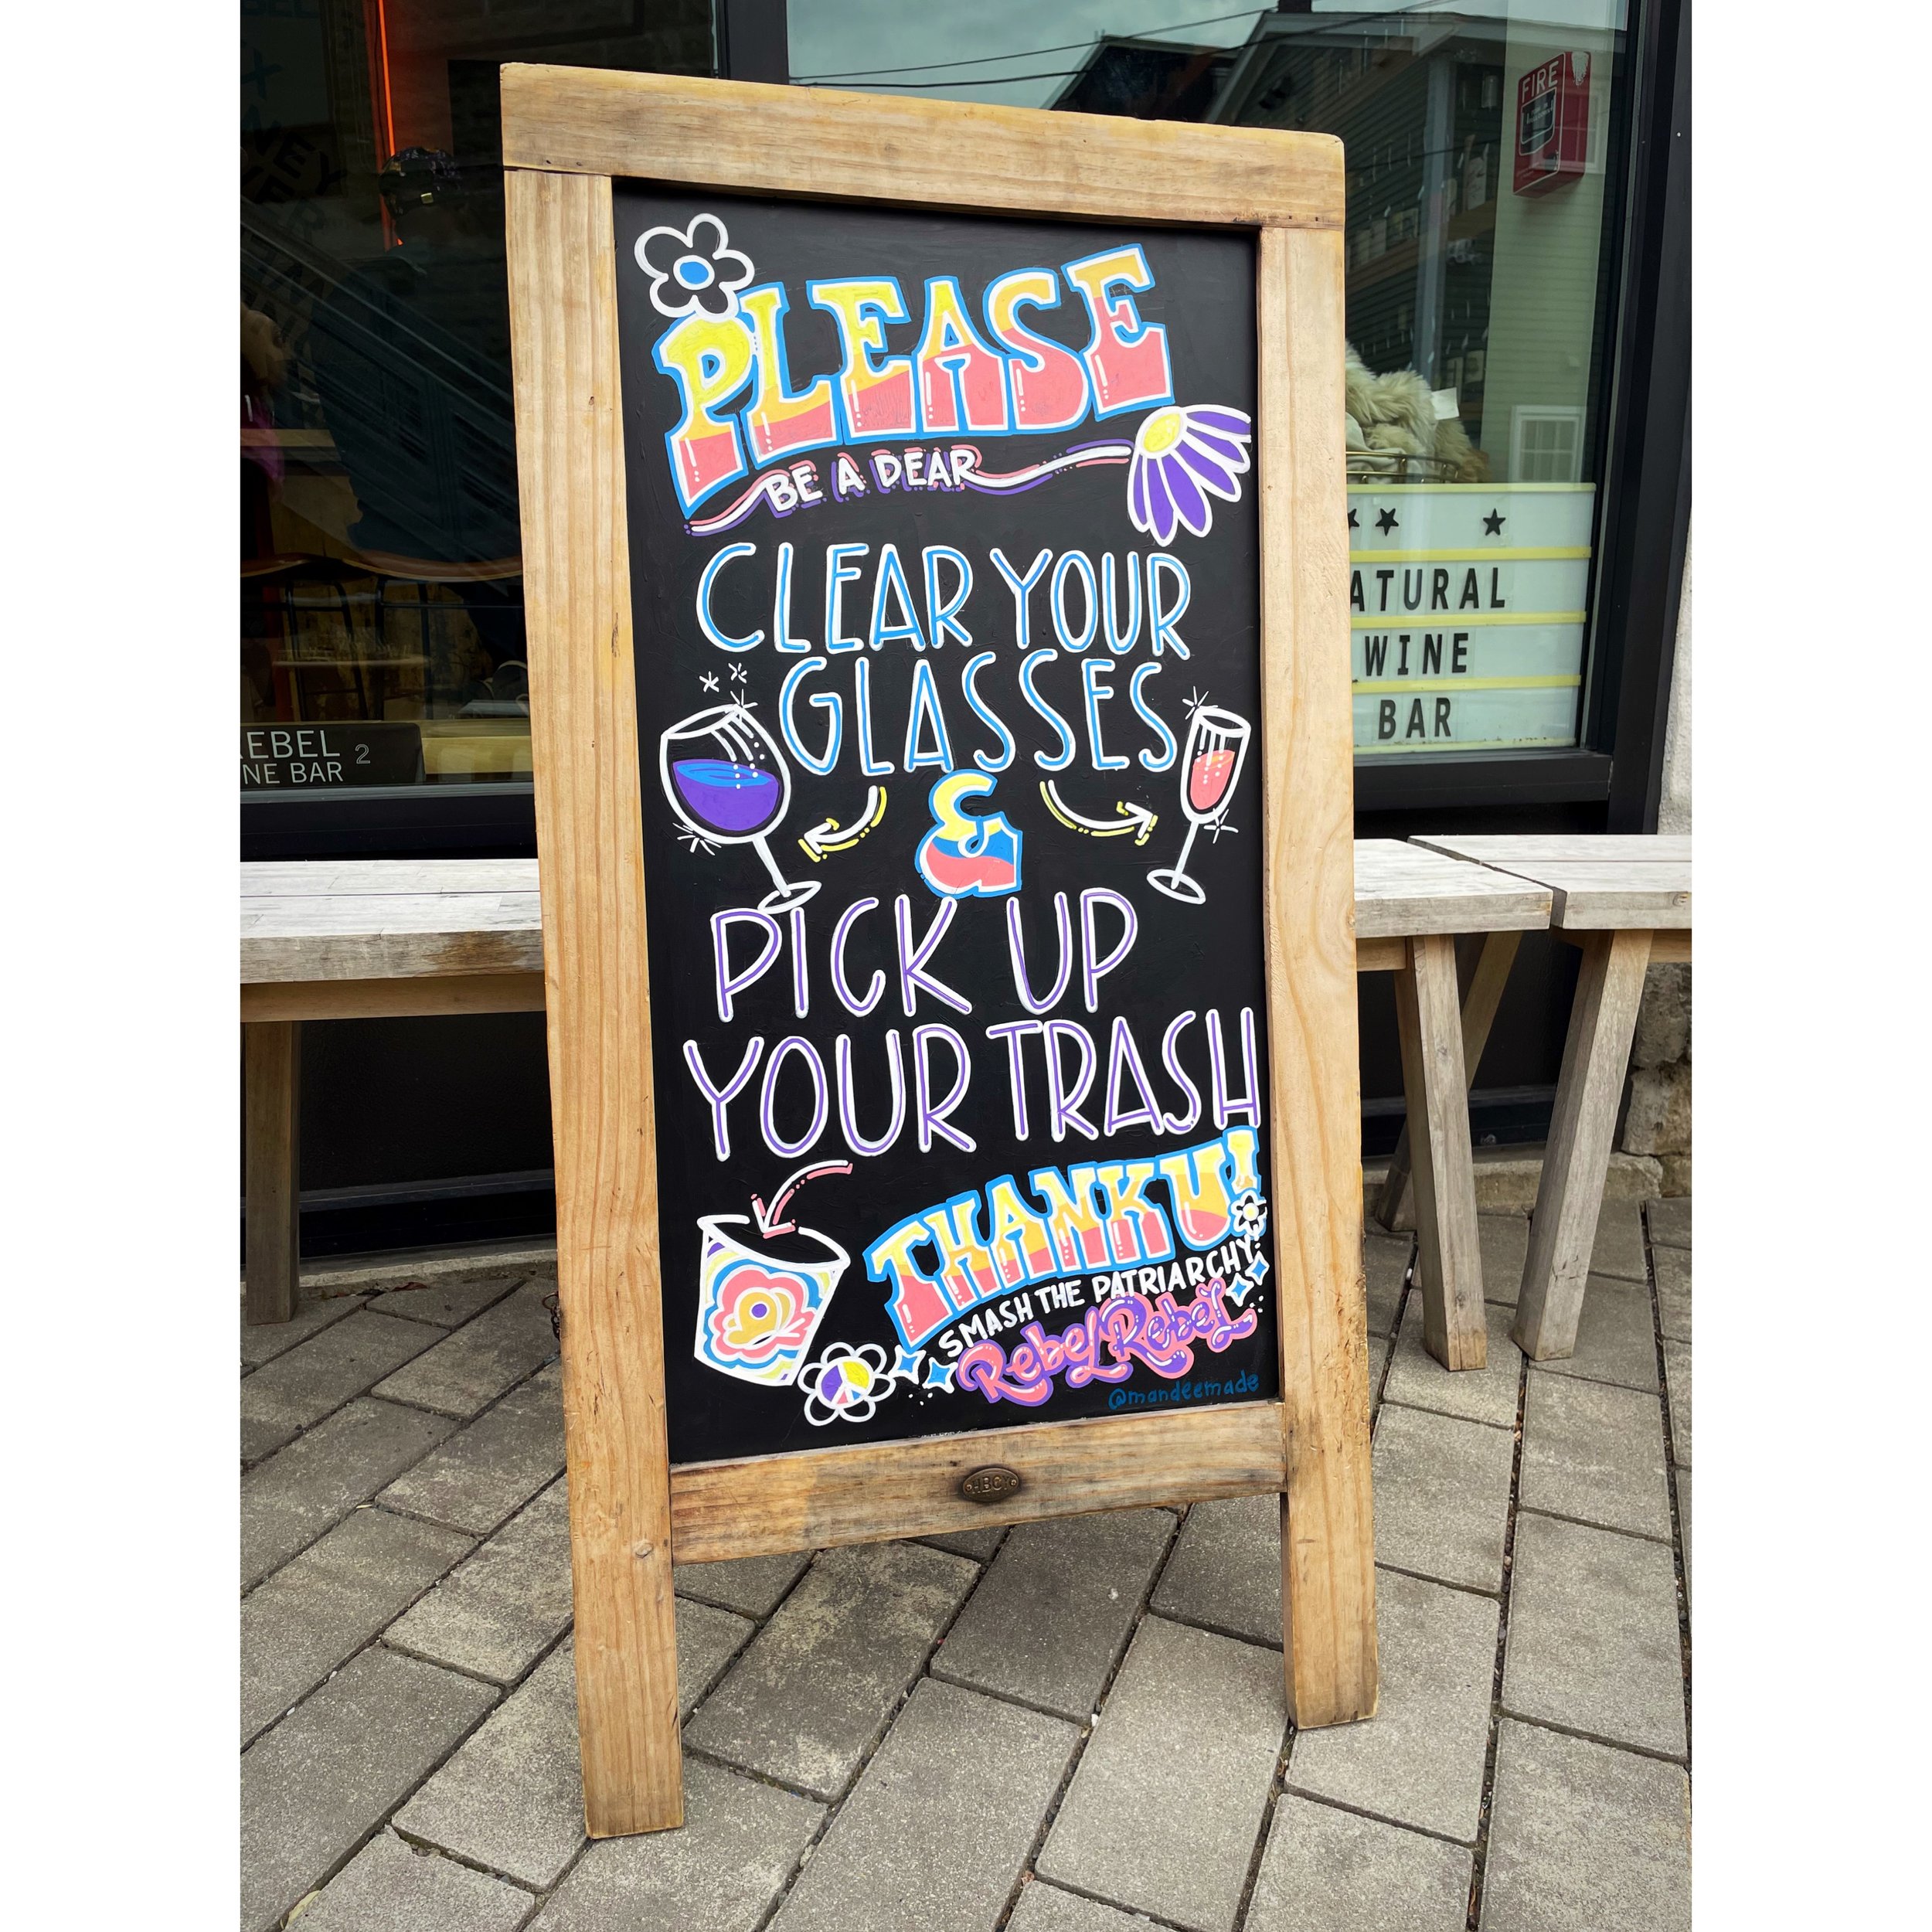 PLEASE
BE A DEAR
CLEAR YOUR
GLASSES
&
PICK UP
YOUR TRASH
THANK U!
SMASH THE PATRIARCHY
Rebel Rebel
@mandeemade
FIRE
ATURAL
WINE
BAR
REBEL 2
NE BAR